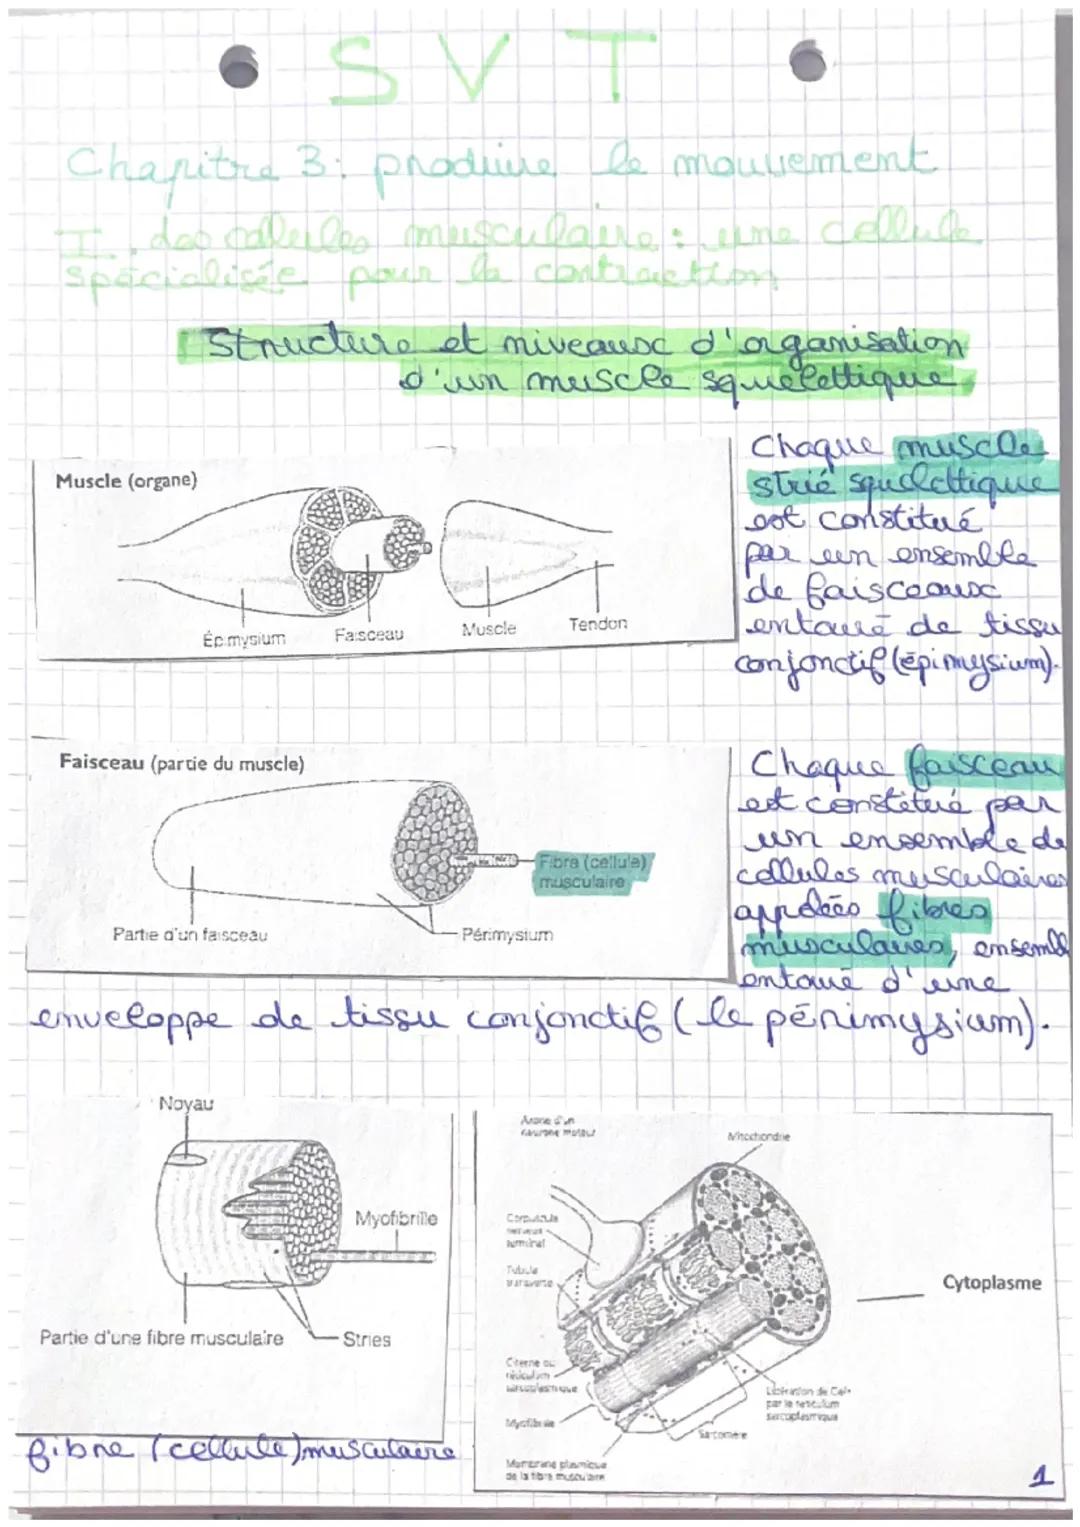 SVT
Chapitre 3: produire le mouvement
I. des cellules musculaire : une cellule
spécialisée pour la contraction
Structure et niveaux d'organisation
d'un muscle squelettique
Muscle (organe)
Épimysium
Faisceau
Muscle
Tendon
Chaque muscle
strié squelettique
est constitué
par un ensemble
de faisceaux
entouré de tissu
conjonctif (épimysium).
Faisceau (partie du muscle)
Fibre (cellule)
musculaire
Partie d'un faisceau
Périmysium
Chaque faisceau
est constitué par
un ensemble de
cellules musculaires
appelées fibres
musculaires, ensembl
entouré d'une
enveloppe de tissu conjonctif (le périmysium).
Noyau
Myofibrille
Partie d'une fibre musculaire
Stries
fibre (cellule) musculaire
Axone d'un
neurone moteur
Mitochondrie
Corpuscule
nerveux
terminal
Tubule
transverse
Cytoplasme
Citerne du
réticulum
sarcoplasmique
Myofibrille
Libération de Ca
par le reticulum
sarcoplasmique
Sarcomère
Membrane plasmique
de la fibre musculaire
1